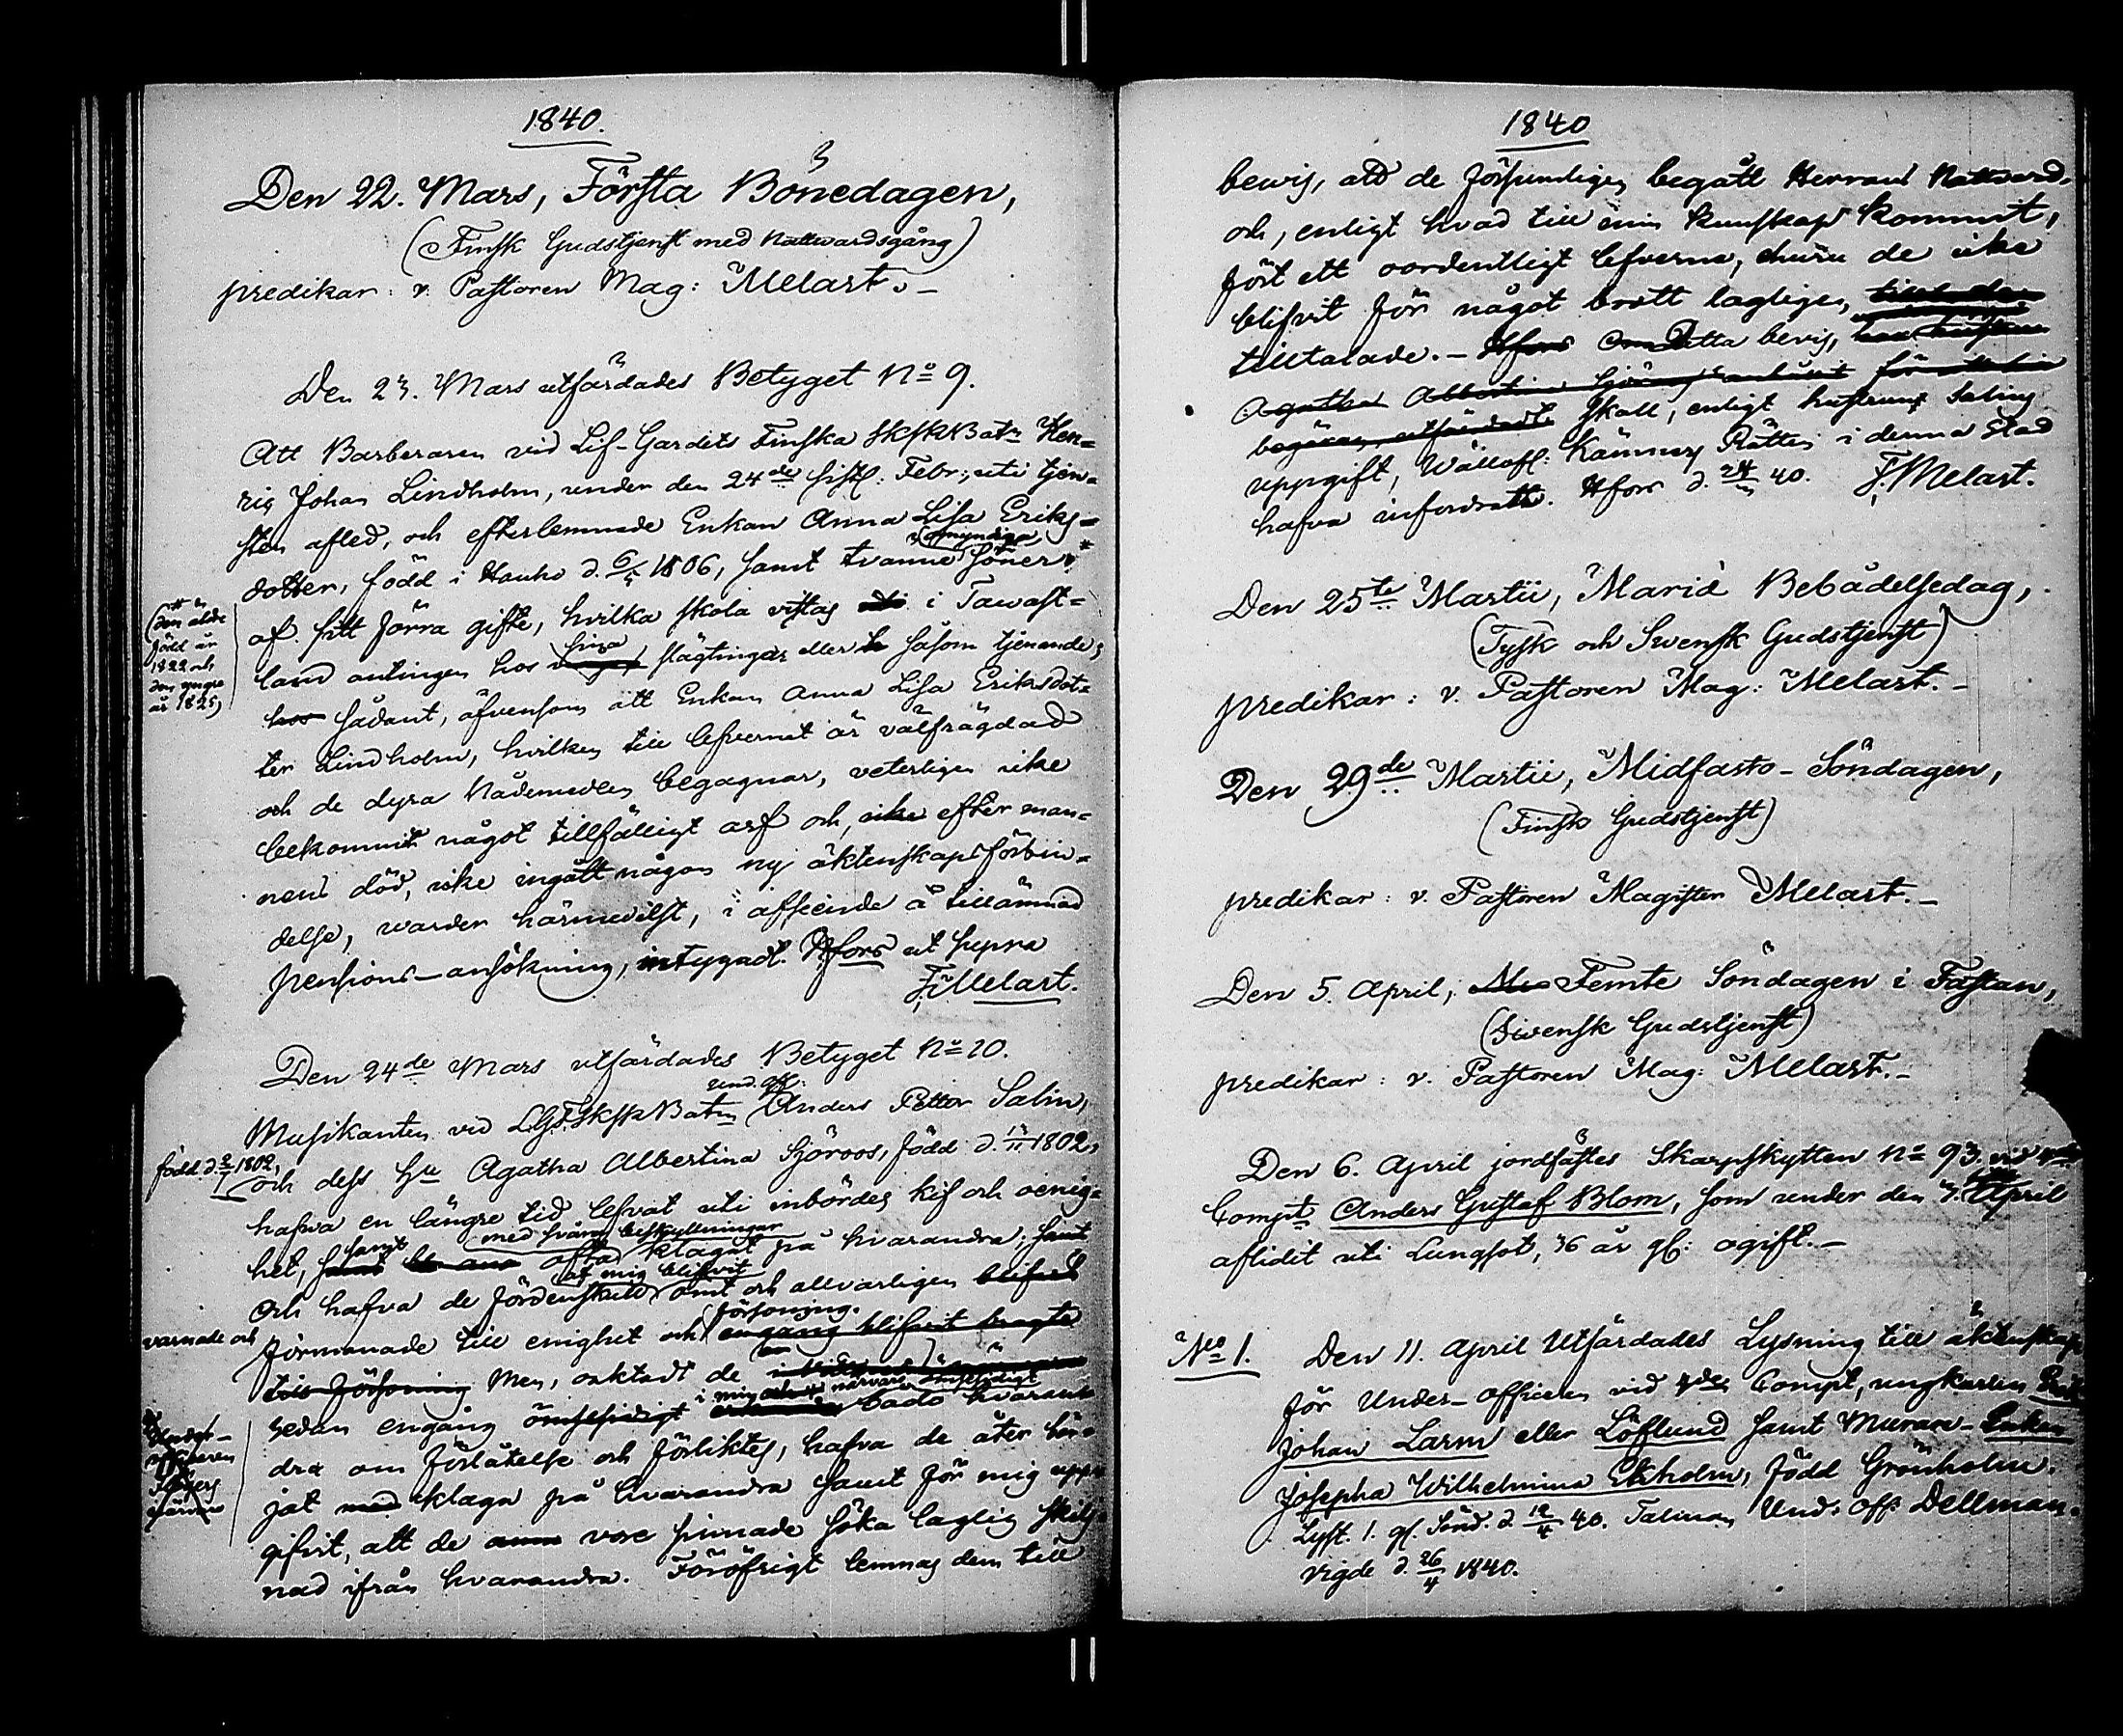 1840.
Den 22. Mars, Första Bönedagen,
(Finsk Gudstjenst med Nattvardsgång)
predikar: v. Pastoren Mag: Melart. –
Den 23. Mars utfärdades Betyget No 9.
Att Barberaren vid Lif-Gardets Finska SkpskBatn Hen=
ric Johan Lindholm, under den 24de sistl: Febr:, uti tjen=
sten afled, och efterlemnade Enkan Anna Lisa Eriks=
omyndiga
dotter, född i Hauho d. 6/4 1806, samt tvanne söner
(den äldre
född år
1822 och
den yngre
år 1825)
af sitt förra gifte, hvilka skola vistas i Tawast=
sina
land antingen hos slägtingar eller såsom tjenande,
hos sådant, äfvensom att Enkan Anna Lisa Eriksdot=
ter Lindholm, hvilken till lefvernet är välfrägdad
och de dyra Nådemedlen begagnar, veterligen icke
bekommit något tillfälligt arf och, icke efter man=
nens död, icke ingått någon ny äktenskapsförbin=
delse, warder härmedelst, i afseende å tillämnad
pensions-ansökning, intygadt. Hfors ut supra
F. Melart.
Den 24de Mars utfärdades Betyget No 10.
und. off:
Musikanten vid LGFSkpskBatn Anders Petter Salin,
född d. 2/7 1802,
och dess Hu Agatha Albertina Sjöroos, född d. 13/11 1802,
hafva en längre tid lefvat uti inbördes kif och oenig=
samt med svåra beskyllningar
het, samt ofta klagat på hvarandra; samt
af mig blifvit
Och hafva de fördenskull ömt och allvarligen blifvit
försoning.
varnade och
förmanade till enighet och engång blifvit bragte
till försoning Men, oaktadt de
i min närvaro ömsesidigt
sedan engång ömsesidigt bado hvaran=
Under-
officeren
dra om förlåtelse och förliktes, hafva de åter bör=
jat med klaga på hvarandra samt för mig upp=
gifvit, att de vore sinnade söka laglig skilj=
nad ifrån hvarandra. Föröfrigt lemnas dem till
1840
bevis, att de försumligen begått Herrans Nattvard.
och, enligt hvad till min kunskap kommit,
fört ett oordentligt lefverne, ehuru de icke
blifvit för något brott lagligen,
tilltalade. – Hfors Detta bevis,
Agatha Albertina Sjöroos för
begäran, utfärdadt skall, enligt hustruns Salins
uppgift, Wällofl: Kämners Rätten i denna stad
hafva infordratt. Hfors d. 24/3 40. F. Melart.
Den 25te Martii, Mariæ Bebådelsedag,
(Tysk och Svensk Gudstjenst)
predikar: v. Pastoren Mag: Melart. –
Den 29de Martii, Midfasto-Söndagen,
(Finsk Gudstjenst)
predikar: v. Pastoren Magister Melart. –
Den 5. April, Femte Söndagen i Fastan,
(Svensk Gudstjenst)
predikar: v. Pastoren Mag: Melart. –
Den 6. April jordfästes Skarpskytten No 93, vid
Compt Anders Gustaf Blom, som under den 3. April
aflidit uti Lungsot, 36 år gl: ogift. –
No 1. Den 11. April Utfärdades Lysning till äktenskap
för Under-officeren vid 4de Compt, ungkarlen
Johan Larm eller Löflund samt Murare-Enkan
Josepha Wilhelmina Ekholm, född Grönholm.
Lyst. 1. gl. Sönd. d. 12/4 40. Talman Und. Off. Dellman.
Vigde d. 26/4 1840.